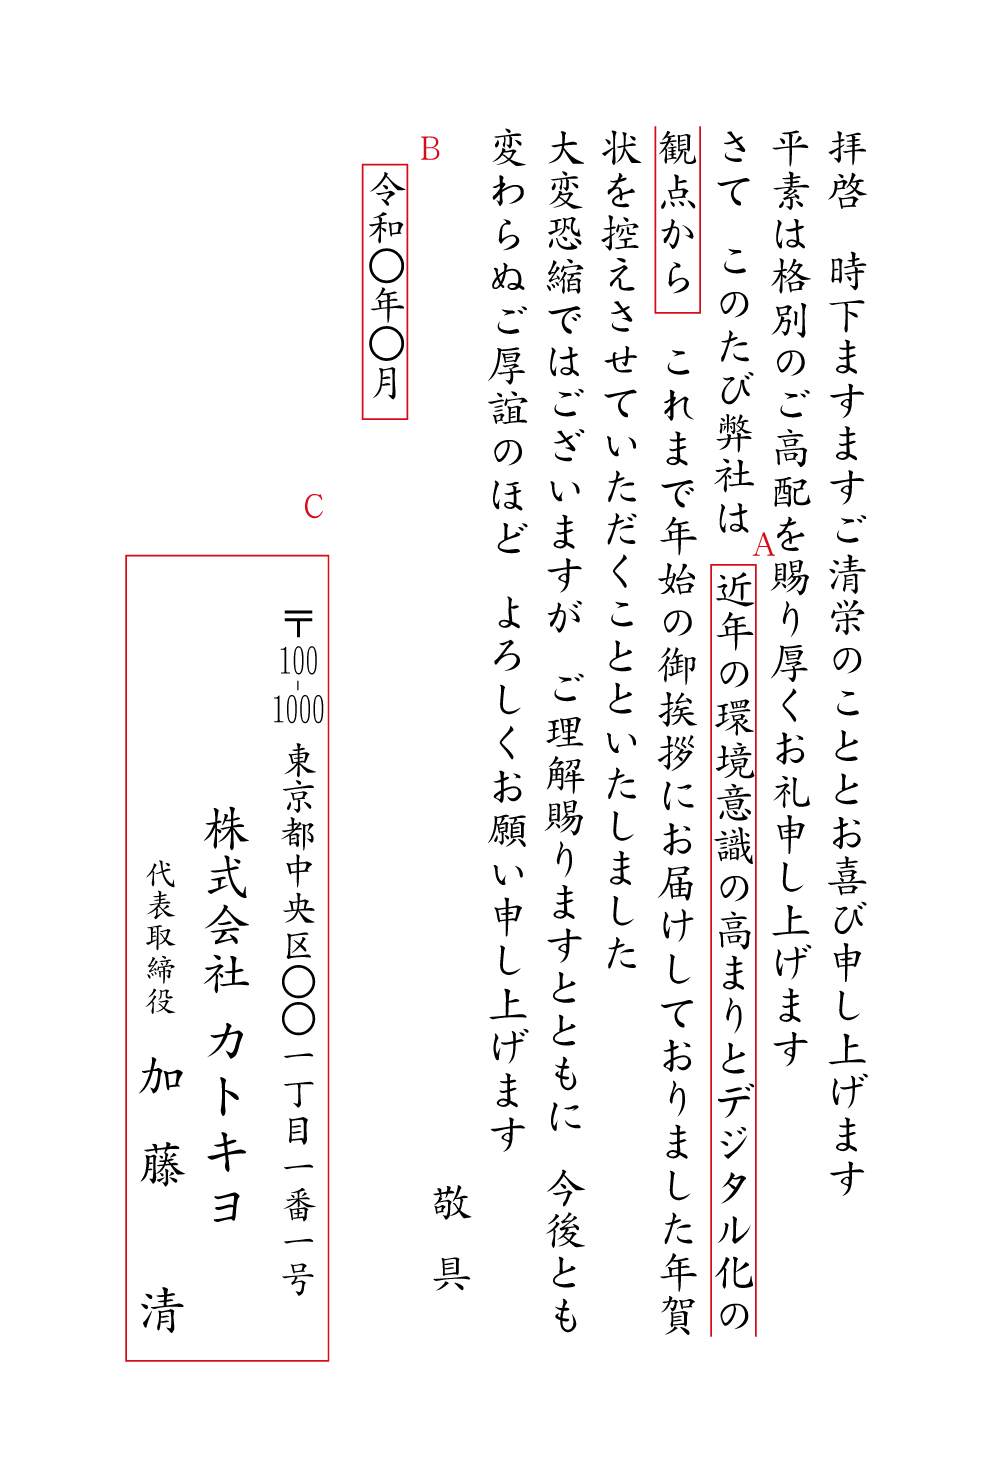 拝啓　時下ますますご清栄のこととお喜び申し上げます
平素は格別のご高配を賜り厚くお礼申し上げます
さて　このたび弊社は　近年の環境意識の高まりとデジタル化の
A
観点から　これまで年始の御挨拶にお届けしておりました年賀
状を控えさせていただくことといたしました
大変恐縮ではございますが　ご理解賜りますとともに　今後とも
変わらぬご厚誼のほど　よろしくお願い申し上げます
敬具
B
令和〇年〇月
C
〒100-1000　東京都中央区〇〇一丁目一番一号
株式会社 カトキヨ
代表取締役　加藤　清